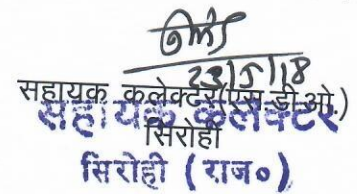 23/5/18
सहायक कलेक्टर(एस.डी.ओ.)
सहायक कलेक्टर
सिरोही
सिरोही (राज०)